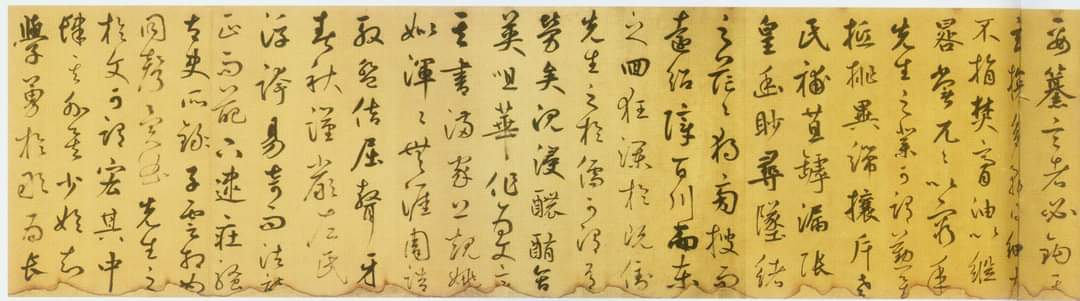 要纂言者必鉤其
玄 多務得細大
不捐焚膏油以繼
晷常兀々以窮年
先生之業可謂勤矣
抵排異端攘斥老
氏補苴罅漏張
皇幽眇尋墜緒
之茫々獨旁搜而
遠紹障百川而東
之回狂瀾於既倒
先生之於儒可謂有
勞矣沉浸醲含
英咀華作為文章
其書滿家上規姚
姒渾々無涯周誥
殷盤佶屈聱牙
春秋謹嚴左氏
浮誇易奇而法詩
正而葩下逮莊騷
太史所錄子雲相如
同先生之
於文可謂宏其中
肆其外矣少始知
學勇於敢為長